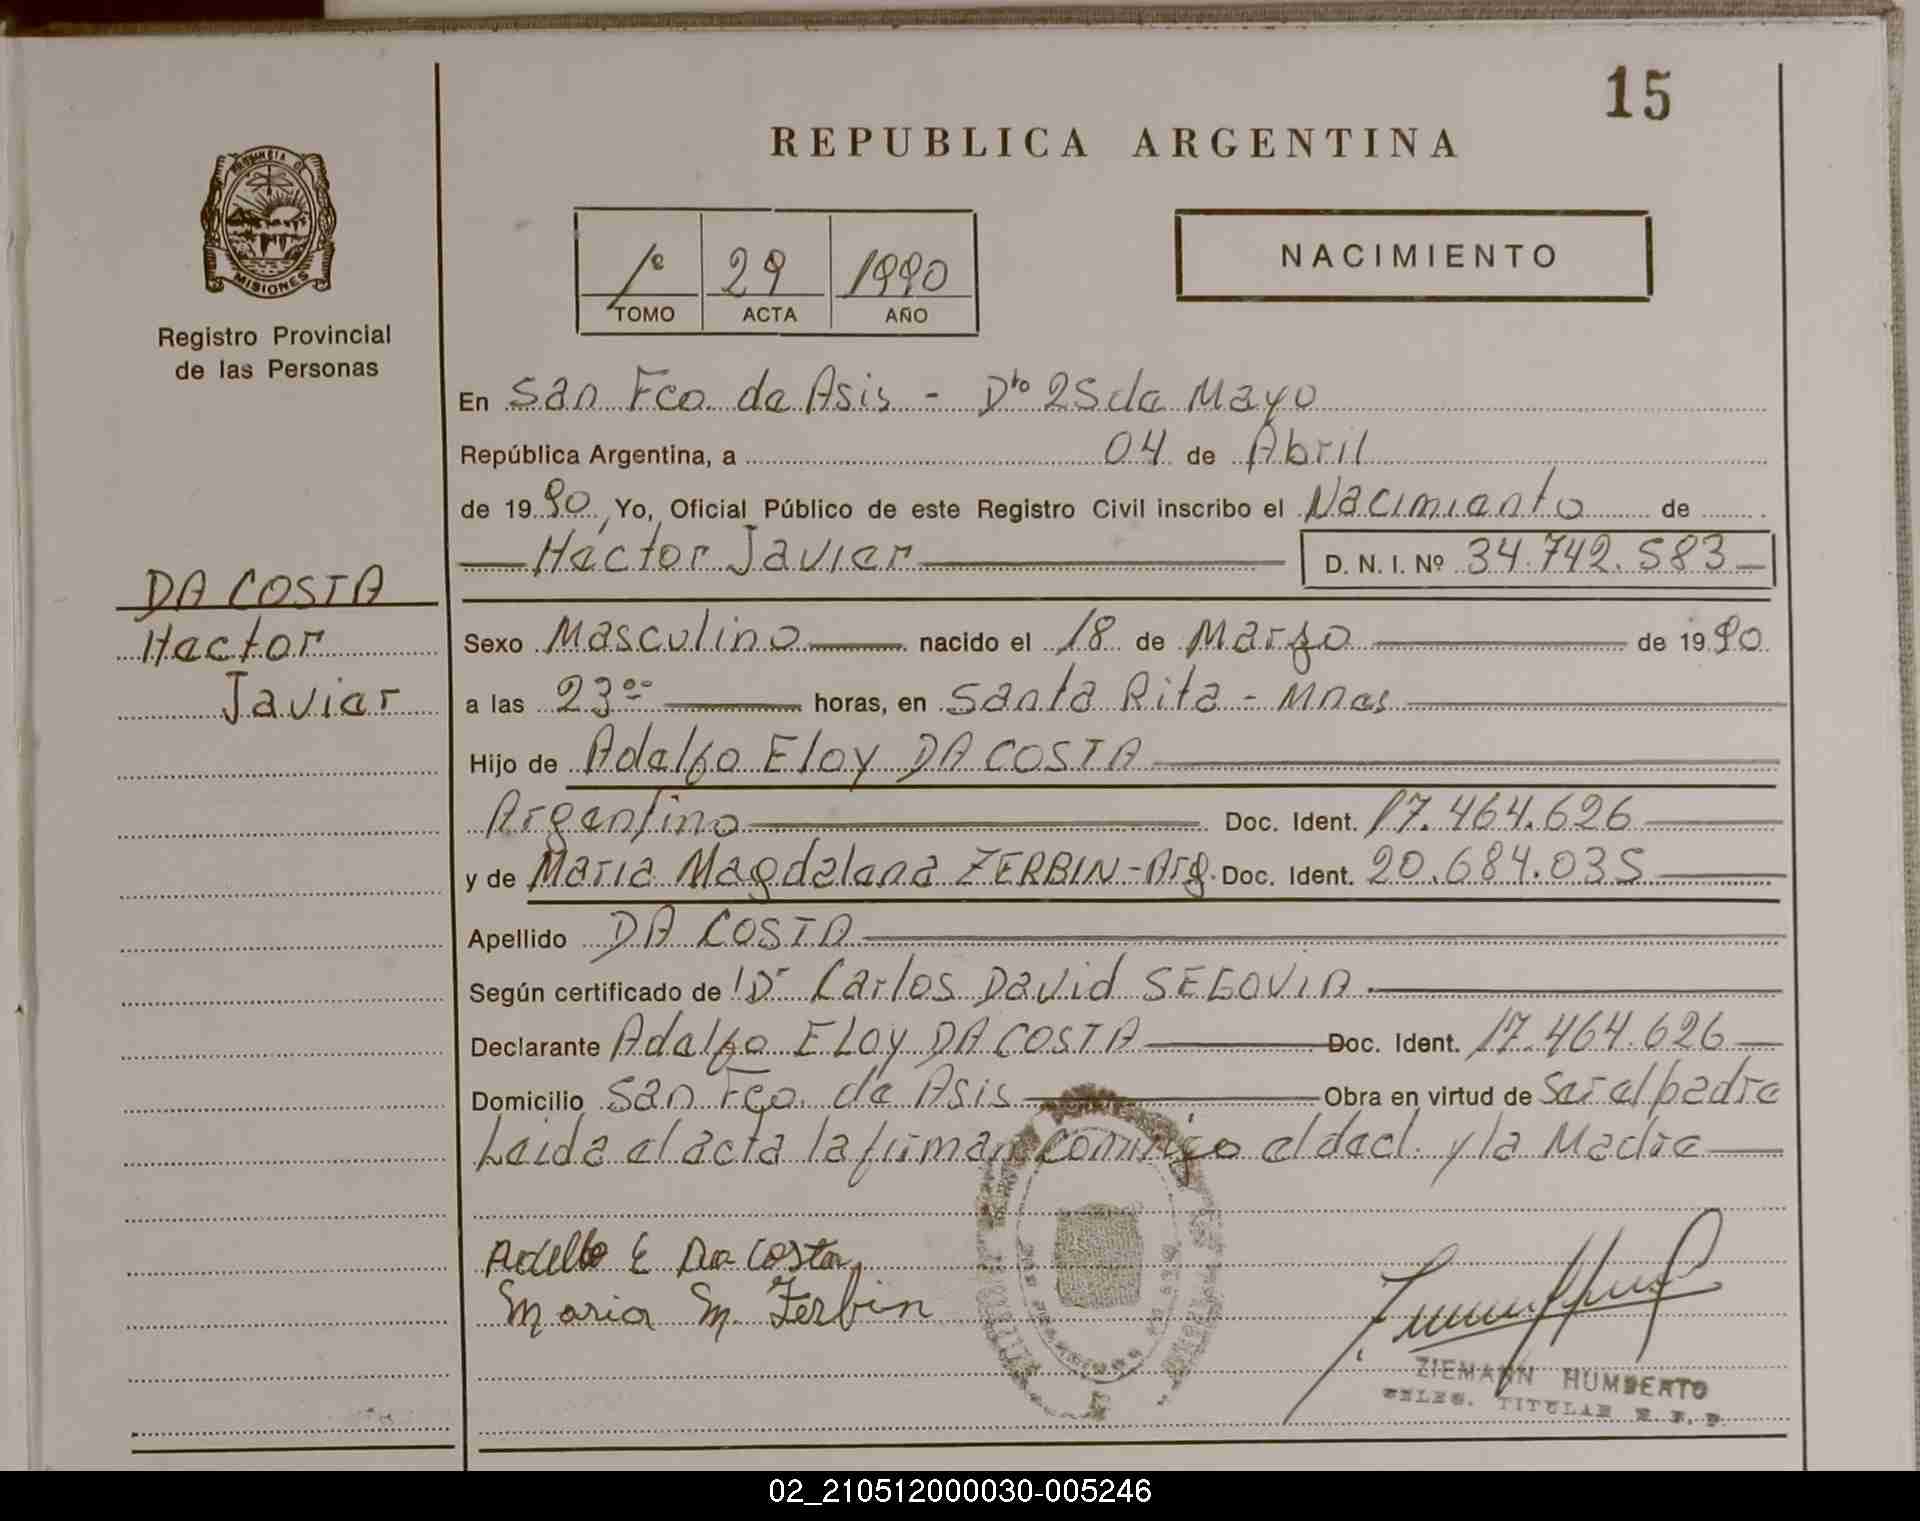 15
REPUBLICA ARGENTINA
PROVINCIA DE
MISIONES
Registro Provincial
de las Personas
1º 29 1990
TOMO ACTA AÑO
NACIMIENTO
En San Fco. de Asis - Dto 25 de Mayo
República Argentina, a 04 de Abril
de 1990, Yo, Oficial Público de este Registro Civil inscribo el Nacimiento de
Hector Javier D. N. I. Nº 34.742.583
DA COSTA
Hector
Javier
Sexo Masculino nacido el 18 de Marzo de 1990
a las 23ºº horas, en Santa Rita - Mnes
Hijo de Adelfo Eloy DA COSTA
Argentino Doc. Ident. 17.464.626
y de Maria Magdalena ZERBIN - Arg. Doc. Ident. 20.684.035
Apellido DA COSTA
Según certificado de Dr Carlos David SEGOVIA
Declarante Adelfo ELoy DA COSTA Doc. Ident. 17.464.626
Domicilio San Fco. de Asis Obra en virtud de Ser el padre
Leida el acta la firman conmigo el decl. y la Madre
Adelfo E Da Costa
Maria M. Zerbin
ZIEMANN HUMBERTO
DELEG. TITULAR R. P. P.
02_210512000030-005246